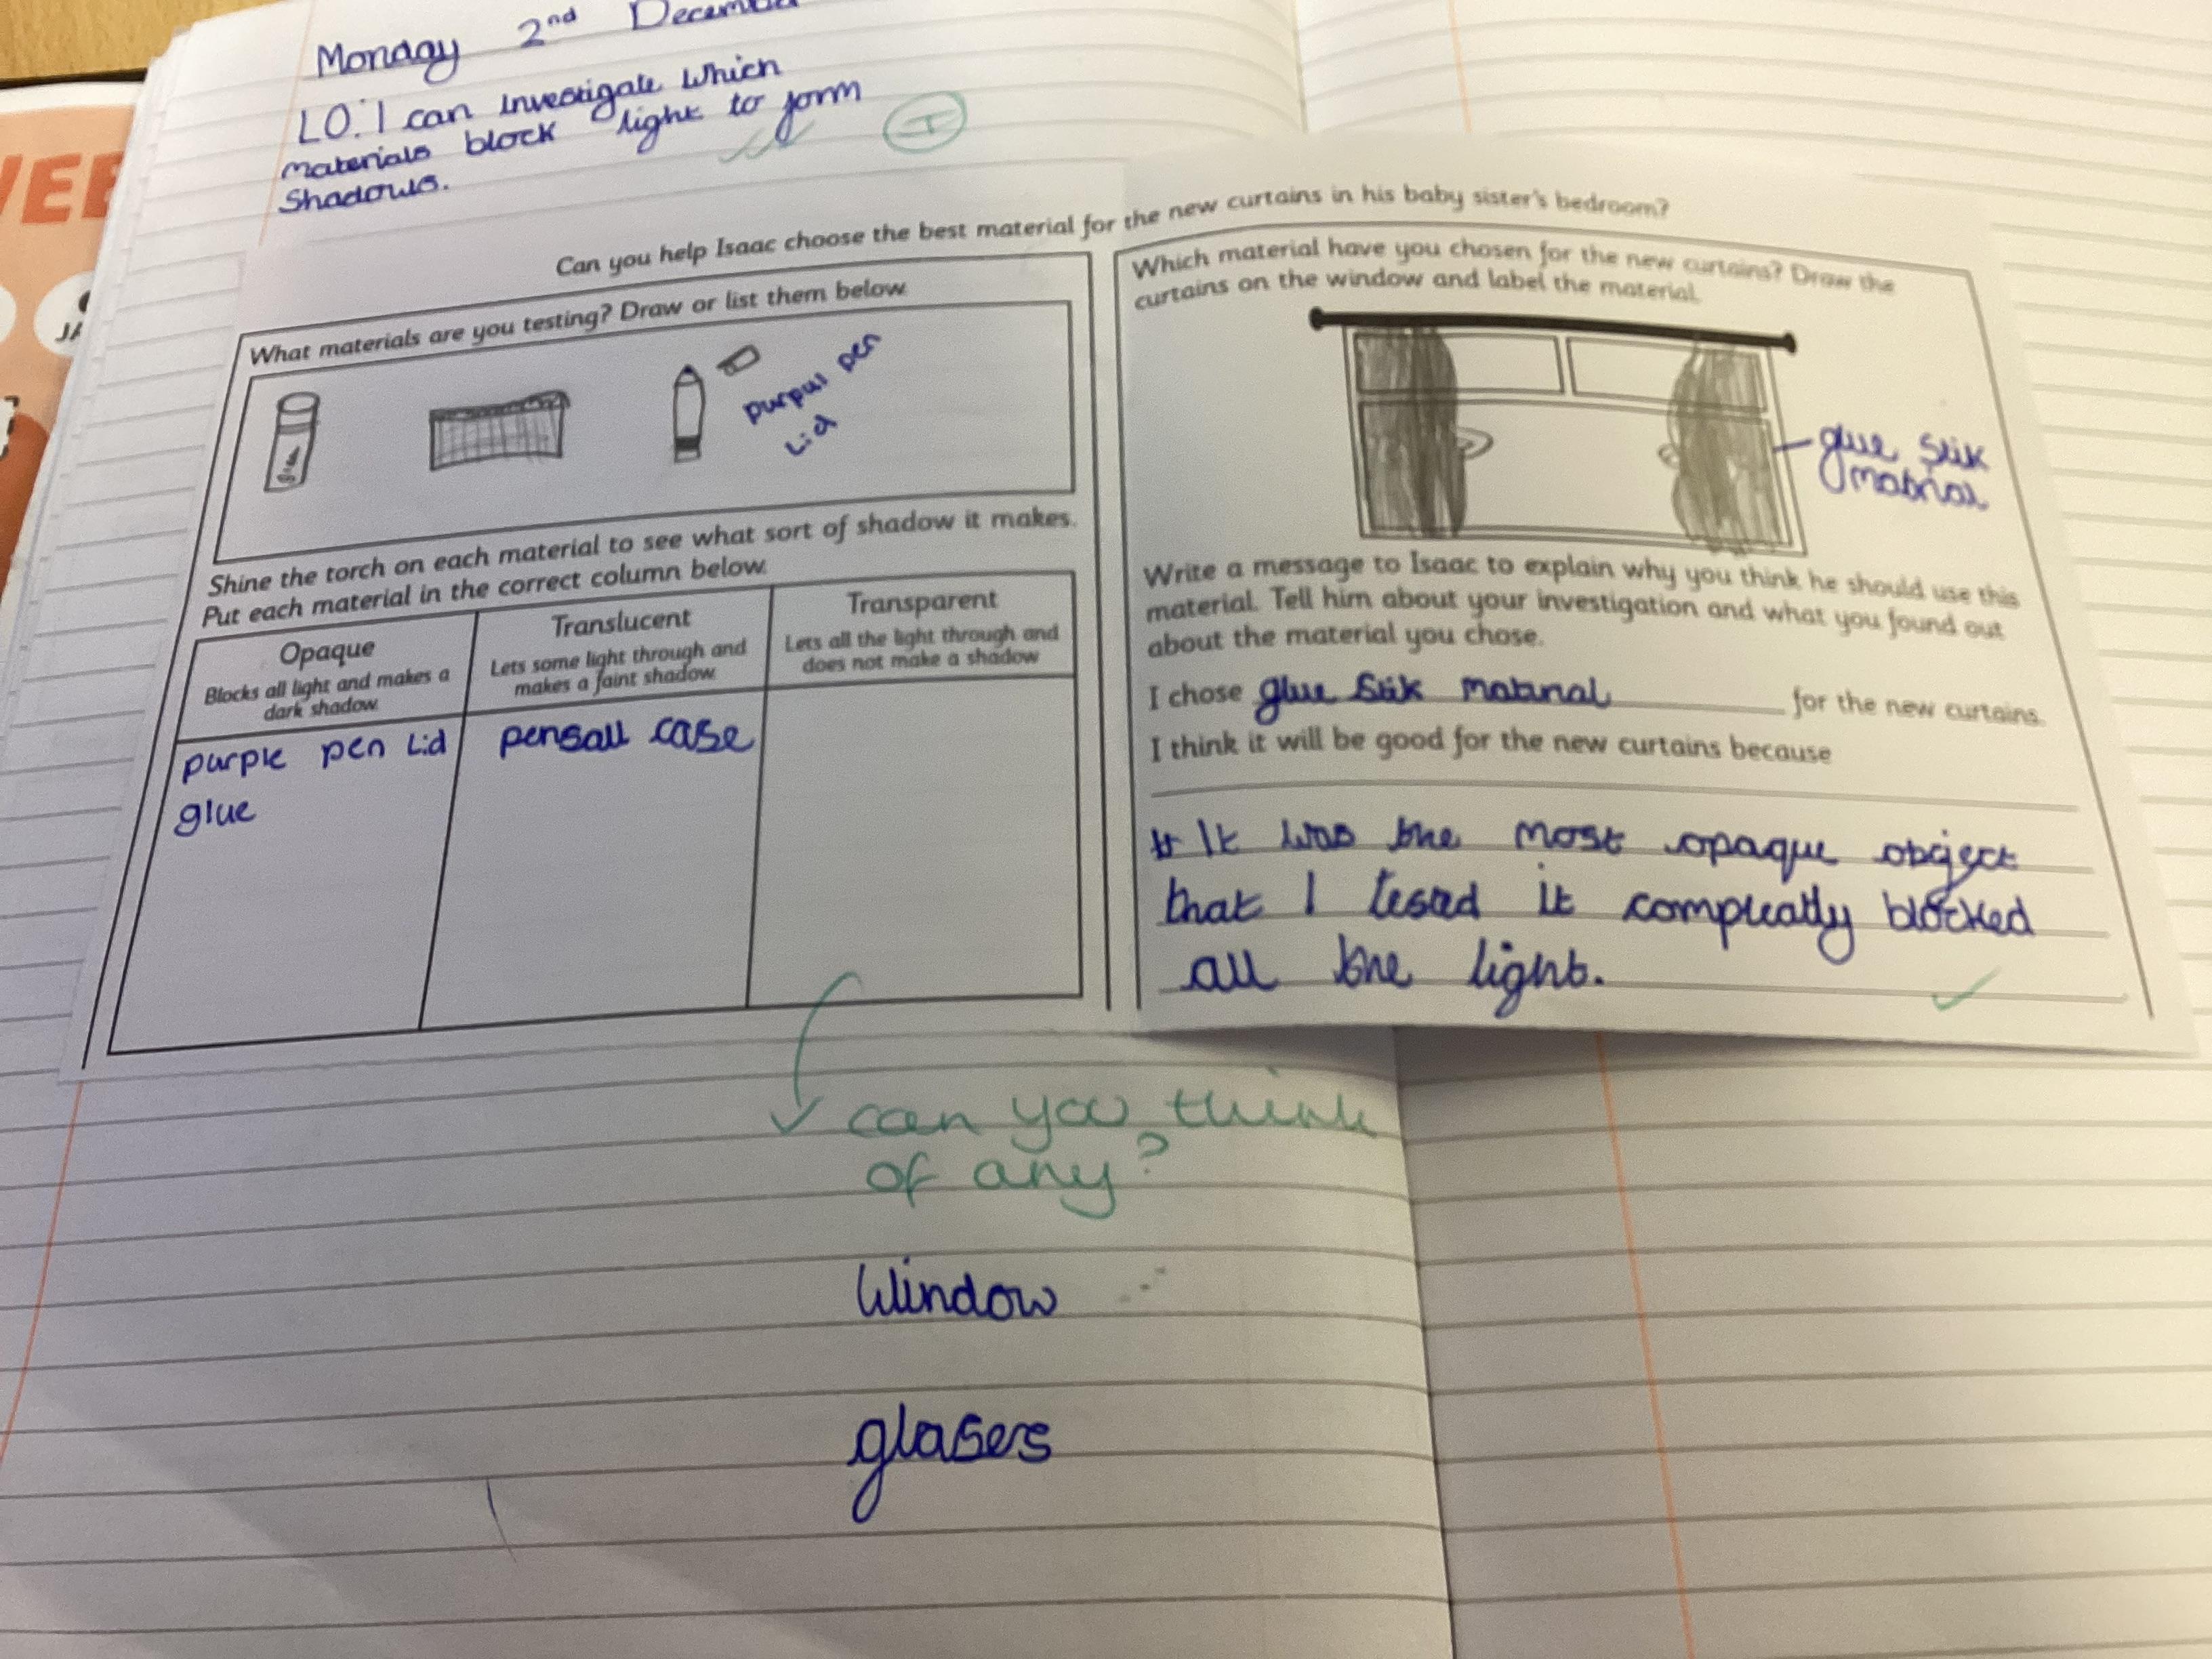 Monday 2nd December
LO: I can investigate which
materials block light to form
shadows.
I
Can you help Isaac choose the best material for the new curtains in his baby sister's bedroom?
What materials are you testing? Draw or list them below.
purpul pen
Lid
Shine the torch on each material to see what sort of shadow it makes.
Put each material in the correct column below.
Opaque
Blocks all light and makes a
dark shadow.
Translucent
Lets some light through and
makes a faint shadow.
Transparent
Lets all the light through and
does not make a shadow
purple pen Lid
glue
pensall case
Which material have you chosen for the new curtains? Draw the
curtains on the window and label the material.
glue stik
Write a message to Isaac to explain why you think he should use this
material. Tell him about your investigation and what you found out
about the material you chose.
I chose glue stik for the new curtains.
I think it will be good for the new curtains because
It was the most opaque object
that I tested it compleatly blocked
all the light.
can you think
of any?
Window
glasers